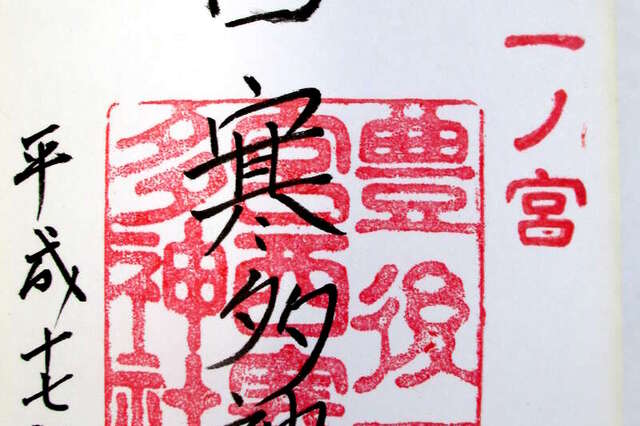 一ノ宮
豊後
宮西寒
多神社
寒多神
平成十七